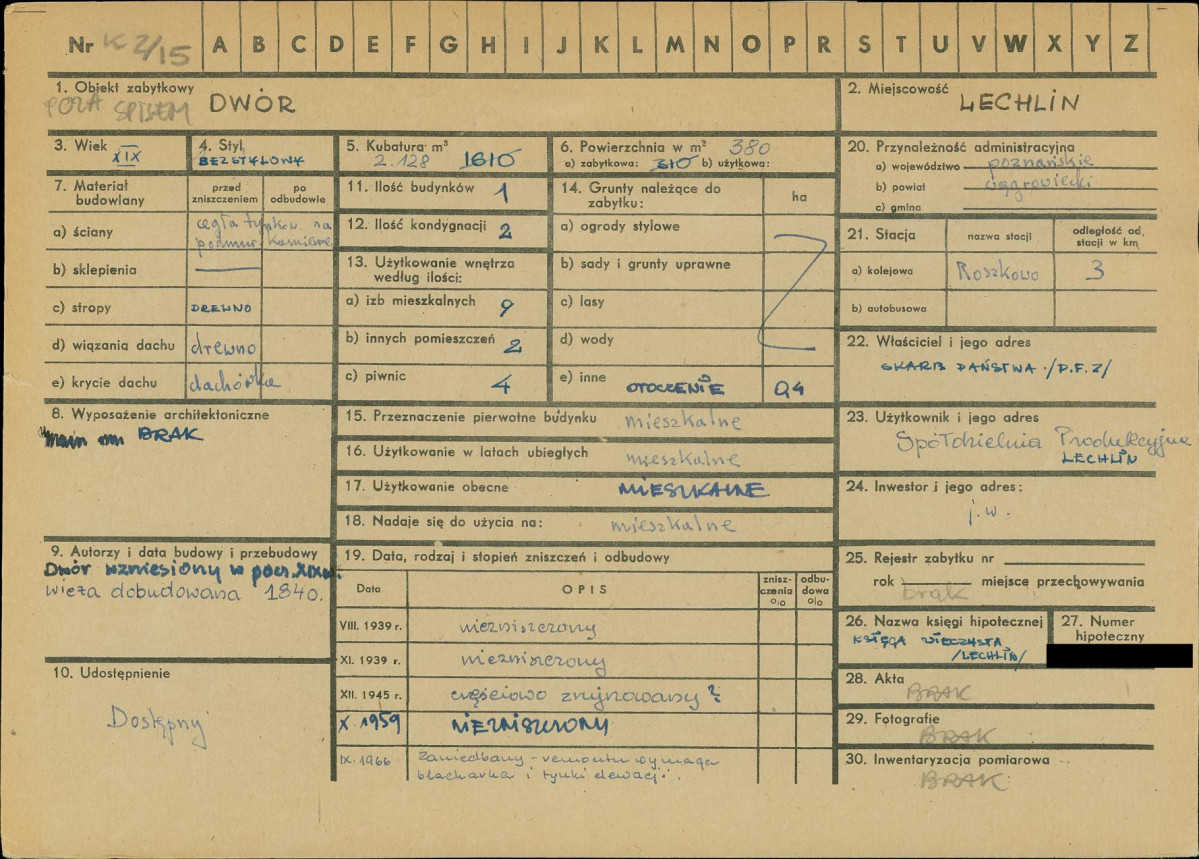 Nr K 2/15 A B C D E F G H I J K L M N O P R S T U V W X Y Z
1. Obiekt zabytkowy
POZA SPISEM DWÓR
2. Miejscowość
LECHLIN
3. Wiek
XIX
4. Styl
BEZSTYLOWY
5. Kubatura m³
2.128 1610
6. Powierzchnia w m² 380
a) zabytkowa: 310 b) użytkowa:
7. Materiał budowlany
przed zniszczeniem
po odbudowie
a) ściany
cegła tynkow. na
podmur. kamienne
b) sklepienia —
c) stropy DREWNO
d) wiązania dachu drewno
e) krycie dachu dachówka
8. Wyposażenie architektoniczne
BRAK
9. Autorzy i data budowy i przebudowy
Dwór wzniesiony w pocz. XIX w.
wieża dobudowana 1840.
10. Udostępnienie
Dostępny
11. Ilość budynków 1
12. Ilość kondygnacji 2
13. Użytkowanie wnętrza
według ilości:
a) izb mieszkalnych 9
b) innych pomieszczeń 2
c) piwnic 4
14. Grunty należące do
zabytku:
ha
a) ogrody stylowe
b) sady i grunty uprawne
c) lasy
d) wody
e) inne OTOCZENIE 0,4
15. Przeznaczenie pierwotne budynku mieszkalne
16. Użytkowanie w latach ubiegłych mieszkalne
17. Użytkowanie obecne MIESZKALNE
18. Nadaje się do użycia na: mieszkalne
19. Data, rodzaj i stopień zniszczeń i odbudowy
Data
OPIS
znisz-
czenia
%
odbu-
dowa
%
VIII. 1939 r. niezniszczony
XI. 1939 r. niezniszczony
XII. 1945 r. częściowo zrujnowany ?
X. 1959 NIEZNISZCZONY
IX. 1966 Zaniedbany - remontu wymaga
blacharka i tynki elewacji.
20. Przynależność administracyjna
a) województwo poznańskie
b) powiat wągrowiecki
c) gmina
21. Stacja
nazwa stacji
odległość od
stacji w km
a) kolejowa Roszkowo 3
b) autobusowa
22. Właściciel i jego adres
SKARB PAŃSTWA /P.F.Z/
23. Użytkownik i jego adres
Spółdzielnia Produkcyjna
LECHLIN
24. Inwestor i jego adres:
j.w.
25. Rejestr zabytku nr
rok miejsce przechowywania
brak
26. Nazwa księgi hipotecznej
KSIĘGA WIECZYSTA
/LECHLIN/
27. Numer
hipoteczny
28. Akta
BRAK
29. Fotografie
BRAK
30. Inwentaryzacja pomiarowa
BRAK